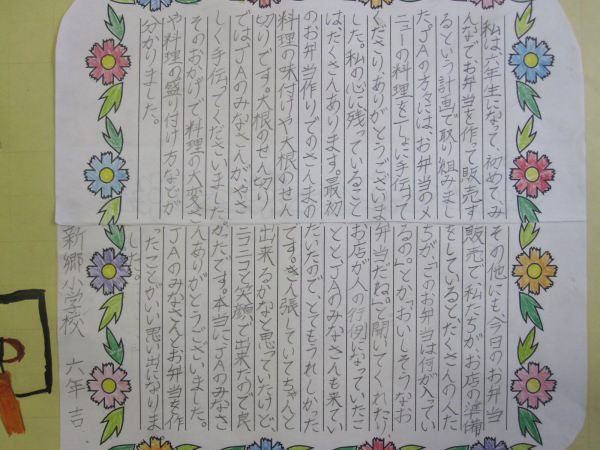 私は六年生になって、初めて、み
んなでお弁当を作って販売す
るという計画で取り組みまし
た。JAの方々には、お弁当のメ
ニューの料理をいっしょに手伝って
くださり、ありがとうございま
した。私の心に残っていること
は、たくさんあります。最初
のお弁当作りでのさんまの
料理の味付けや大根のせん
切りです。大根のせん切り
ではJAのみなさんがやさ
しく手伝ってくださいました。
そのおかげで料理の大変さ
や料理の盛り付け方などが
分かりました。
その他にも、今日のお弁当
販売で、私たちが、お店の準備
をしていると、たくさんの人た
ちが、「このお弁当は何が入ってい
るの。」とか「おいしそうなお
弁当だね。」と聞いてくれたり
お店が人の行例になっていたこ
とと、JAのみなさんも来てい
だいたので、とてもうれしかった
です。きん張していてちゃんと
出来るかなと思っていたけど、
ニコニコと笑顔で出来たので良
かったです。本当にJAのみなさ
んありがとうございました。
JAのみなさんとお弁当を作
ったことがいい思い出になりま
した。
新郷小学校 六年 吉